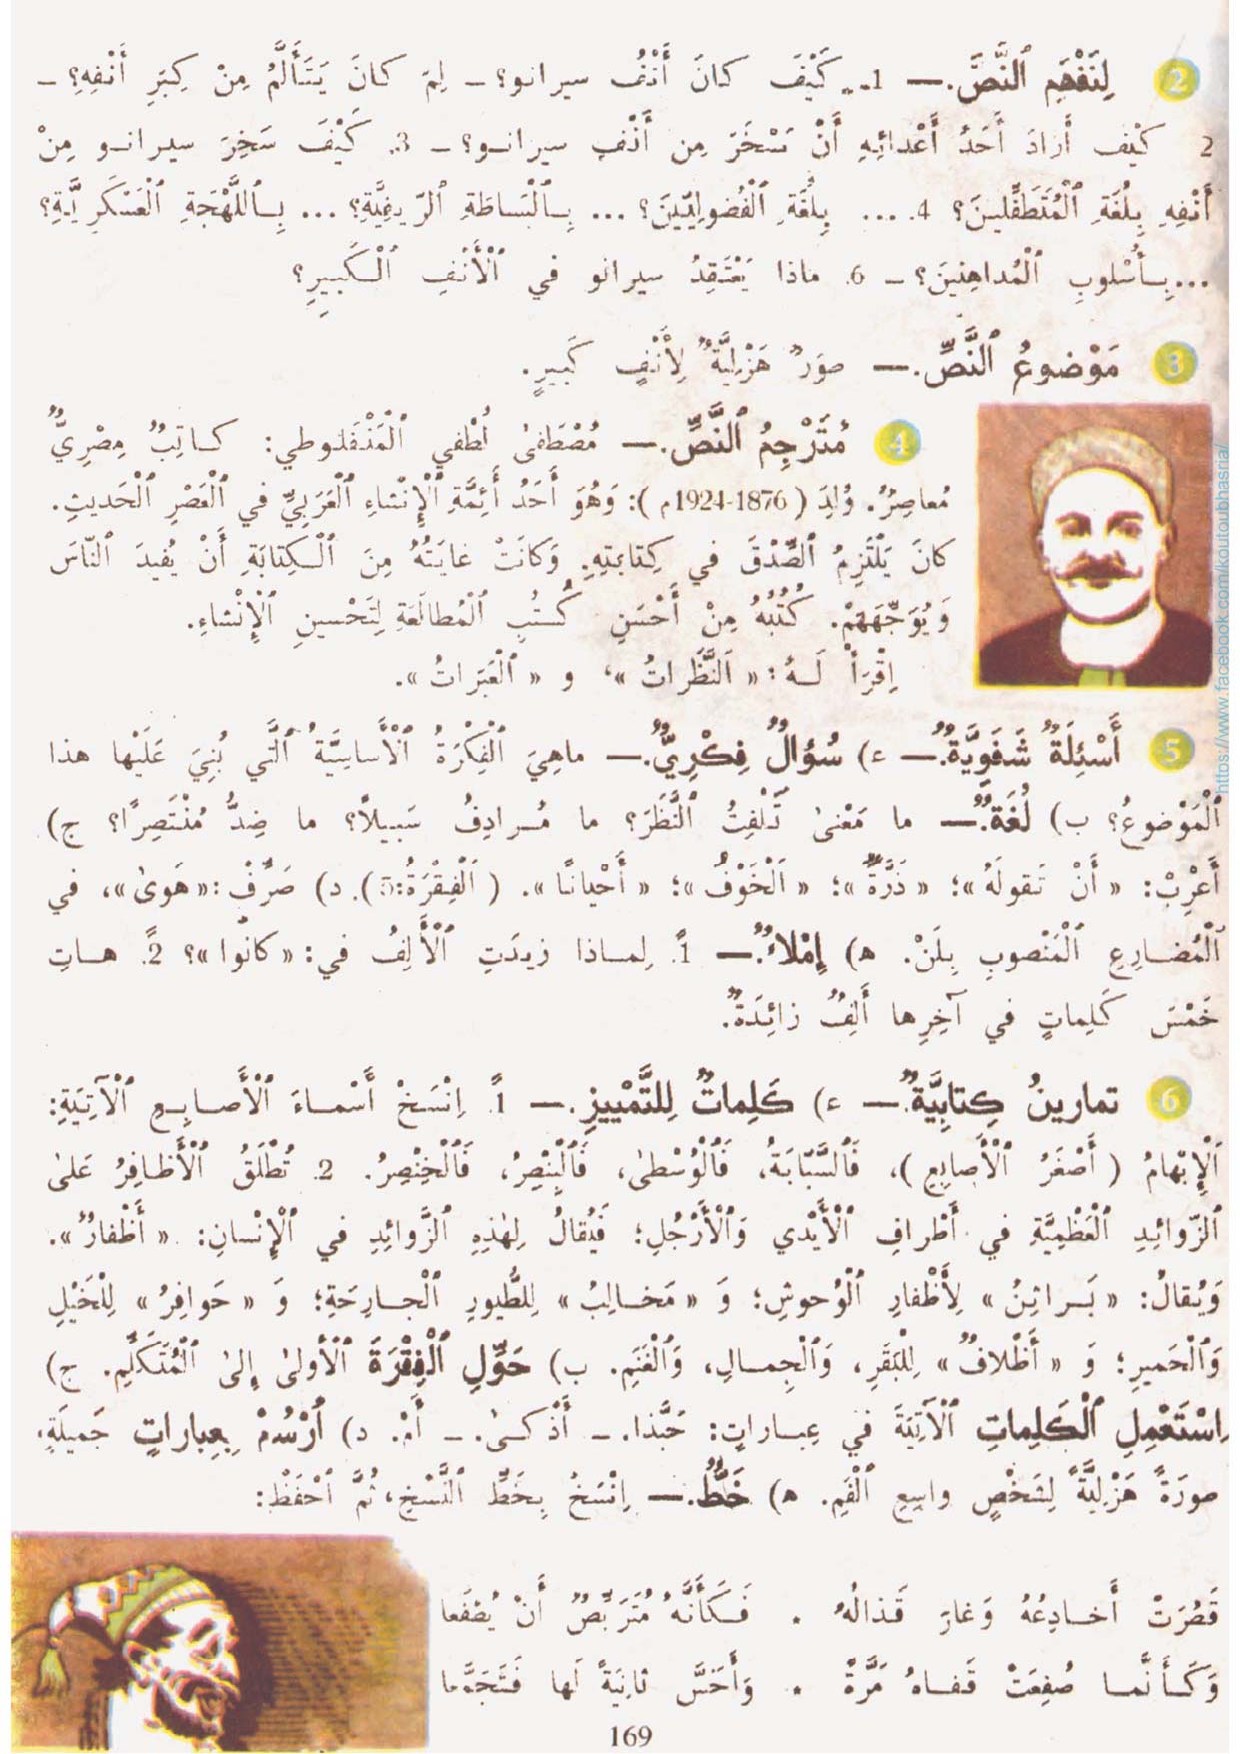 2 لِنَفْهَمِ ٱلنَّصَّ.— 1.. كَيْفَ كانَ أَنْفُ سيرانو؟ – لِمَ كانَ يَتَأَلَّمُ مِنْ كِبَرِ أَنْفِهِ؟ –
2 كَيْفَ أَرادَ أَحَدُ أَعْدائِهِ أَنْ يَسْخَرَ مِن أَنْفِ سيرانـو؟ – 3. كَيْفَ سَخِرَ سيرانـو مِنْ
أَنْفِهِ بِلُغَةِ ٱلْمُتَطَفِّلينَ؟ 4. ... بِلُغَةِ ٱلْفُضولِيّينَ؟ ... بِـٱلْبَساطَةِ ٱلرّيفِيَّةِ؟ ... بِـٱللَّهْجَةِ ٱلْعَسْكَرِيَّةِ؟
...بِـأُسْلوبِ ٱلْمُداهِنينَ؟ – 6. ماذا يَعْتَقِدُ سيرانو في ٱلْأَنْفِ ٱلْـكَبيرِ؟
3 مَوْضوعُ ٱلنَّصِّ.— صُوَرٌ هَزْلِيَّةٌ لِأَنْفٍ كَبيرٍ.
4 مُتَرْجِمُ ٱلنَّصِّ.— مُصْطَفىٰ لُطْفي ٱلْمَنْفَلوطي: كـاتِبٌ مِصْرِيٌّ
مُعاصِرٌ. وُلِدَ ( 1876-1924م ): وَهُوَ أَحَدُ أَئِمَّةِ ٱلْإِنْشاءِ ٱلْعَرَبِيِّ في ٱلْعَصْرِ ٱلْحَديثِ.
كانَ يَلْتَزِمُ ٱلصِّدْقَ في كِتابَتِهِ. وَكانَتْ غايَتُهُ مِنَ ٱلْـكِتابَةِ أَنْ يُفيدَ ٱلنّاسَ
وَيُوَجِّهَهُمْ. كُتُبُهُ مِنْ أَحْسَنِ كُتُبِ ٱلْمُطالَعَةِ لِتَحْسينِ ٱلْإِنْشاءِ.
اِقْرَأْ لَـهُ: « اَلنَّظَراتُ »، و « ٱلْعَبَراتُ ».
5 أَسْئِلَةٌ شَفَوِيَّةٌ.— ء) سُؤالٌ فِكْرِيٌّ.— ماهِيَ ٱلْفِكْرَةُ ٱلْأَساسِيَّةُ ٱلَّتي بُنِيَ عَلَيْها هذا
ٱلْمَوْضوعُ؟ ب) لُغَةٌ.— ما مَعْنىٰ تَلْفِتُ ٱلنَّظَرَ؟ ما مُـرادِفُ سَبيلاً؟ ما ضِدُّ مُنْتَصِرًا؟ ج)
أَعْرِبْ: « أَنْ تَقولَهُ »؛ « ذَرَّةٌ »؛ « اَلْخَوْفُ »؛ « أَحْيانًا ». ( اَلْفِقْرَةُ:5). د) صَرِّفْ: « هَوىٰ »، في
ٱلْمُضـارِعِ ٱلْمَنْصوبِ بِلَنْ. ه) إِمْلاءٌ.— 1ً. لِمـاذا زيدَتِ ٱلْأَلِفُ في: « كانُوا »؟ 2ً. هـاتِ
خَمْسَ كَلِماتٍ في آخِرِها أَلِفٌ زائِدَةٌ.
6 تمارينُ كِتابِيَّةٌ.— ء) كَلِماتٌ لِلتَّمْييزِ.— 1ً. اِنْسَخْ أَسْمـاءَ ٱلْأَصـابِـعِ ٱلْآتِيَةِ:
اَلْإِبْهامُ ( أَصْغَرُ ٱلْأَصابِعِ )، فَٱلسَّبّابَةُ، فَٱلْوُسْطىٰ، فَٱلْبِنْصِرُ، فَٱلْخِنْصِرُ. 2. تُطْلَقُ ٱلْأَظافِرُ عَلىٰ
ٱلزَّوائِدِ ٱلْعَظْمِيَّةِ في أَطْرافِ ٱلْأَيْدي وَٱلْأَرْجُلِ؛ فَيُقالُ لِهٰذِهِ ٱلزَّوائِدِ في ٱلْإِنْسانِ: « أَظْفارٌ ».
وَيُقالُ: « بَـراثِنُ » لِأَظْفارِ ٱلْوُحوشِ؛ وَ « مَخـالِبُ » لِلطُّيورِ ٱلْجـارِحَةِ؛ وَ « حَوافِرُ » لِلْخَيْلِ
وَٱلْحَميرِ؛ وَ « أَظْلافٌ » لِلْبَقَرِ، وَٱلْجِمـالِ، وَٱلْغَنَمِ. ب) حَوِّلِ ٱلْفِقْرَةَ ٱلْأولىٰ إِلىٰ ٱلْمُتَكَلِّمِ. ج)
اِسْتَعْمِلِ ٱلْكَلِماتِ ٱلْآتِيَةَ في عِبـاراتٍ: حَبَّذا. – أَذْكـىٰ. – أَمْ. د) اُرْسُمْ بِعِباراتٍ جَميلَةٍ،
صورَةً هَزْلِيَّةً لِشَخْصٍ واسِعِ ٱلْفَمِ. ه) خَطٌّ.— اِنْسَخْ بِخَطِّ ٱلنَّسْخِ، ثُمَّ ٱحْفَظْ:
قَصُرَتْ أَخـادِعُهُ وَغارَ قَـذالُهُ • فَـكَأَنَّهُ مُتَرَبِّصٌ أَنْ يُصْفَعا
وَكَـأَنَّمـا صُفِعَتْ قَفـاهُ مَرَّةً • وَأَحَسَّ ثانِيَةً لَها فَتَجَمَّعا
169
https://www.facebook.com/koutoubhasria/